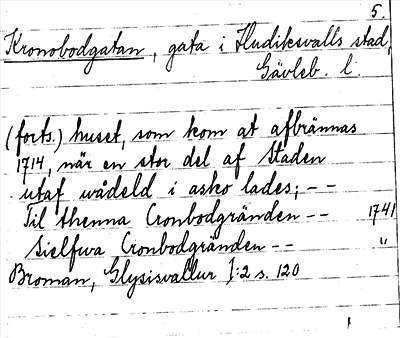 5.
Kronobodgatan, gata i Hudiksvalls stad,
Gävleb. l.
(forts.) huset, som kom at afbrännas
1714, när en stor del af Staden
utaf wådeld i asko lades; - -
Til thenna Cronbodgränden - - 1741
Sielfwa Cronbodgränden - - "
Broman, Glysisvallur I:2 s. 120